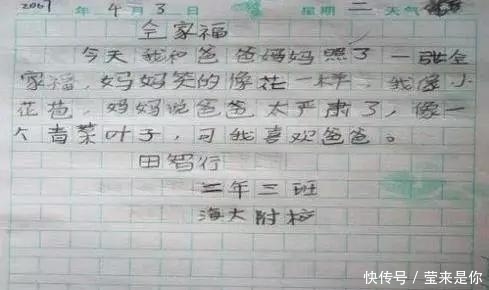 2007年4月3日 星期二 天气
全家福
今天我和爸爸妈妈照了一张全
家福，妈妈笑的像花一样，我像小
花苞，妈妈说爸爸太严肃了，像一
个青菜叶子，可我喜欢爸爸。
田智行
二年三班
海大附校
快传号／莹来是你